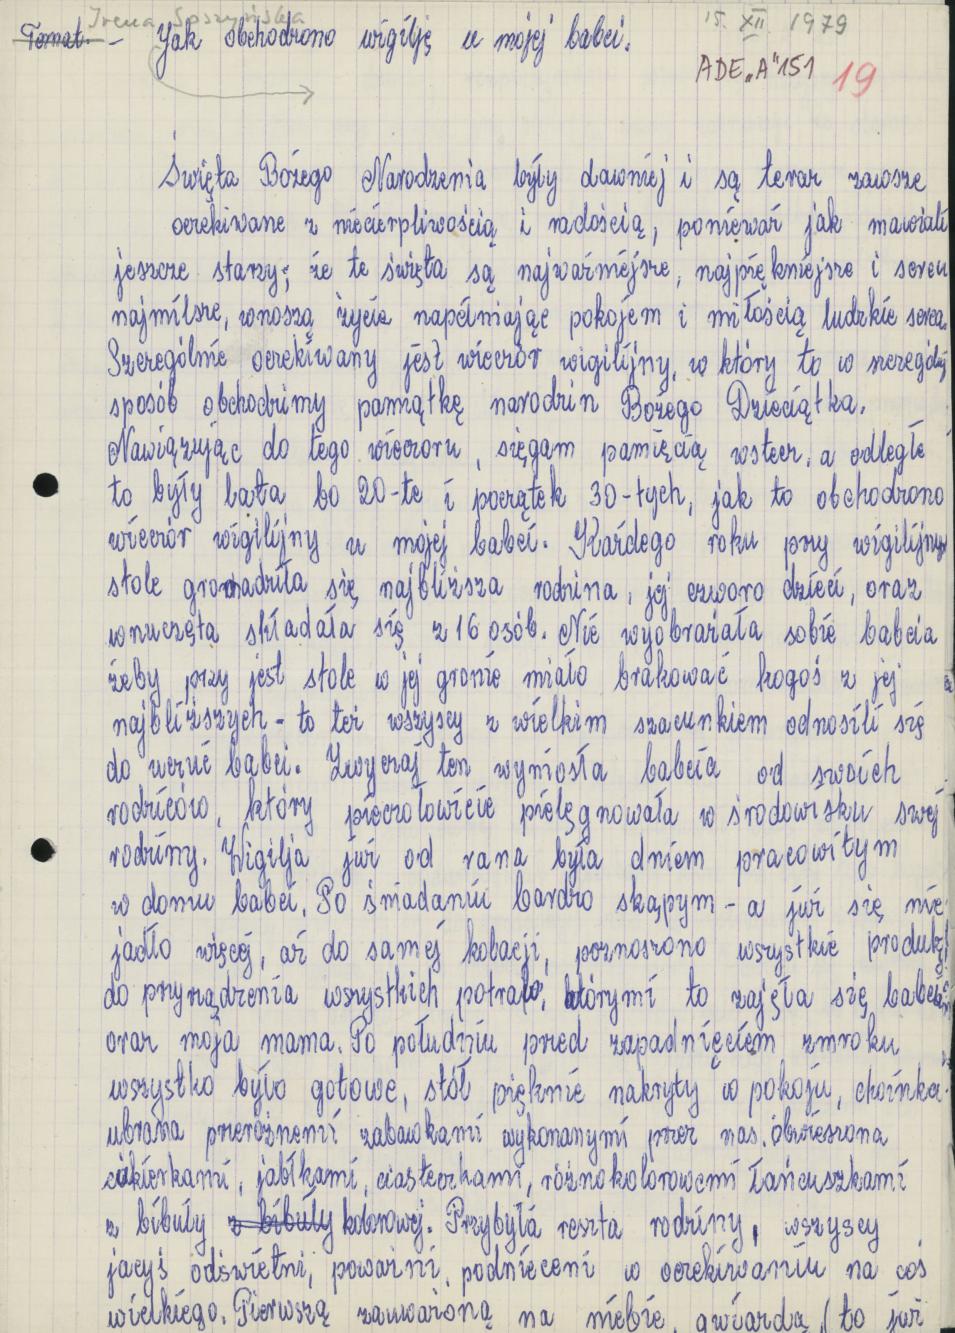 Irena Soszyńska
15. XII. 1979
Temat. - Jak obchodzono wigilję u mojej babci.
ADE „A" 151 19
Święta Bożego Narodzenia były dawniej i są teraz zawsze
oczekiwane z niecierpliwością i radością, ponieważ jak mawiali
jeszcze starzy; że te święta są najważniejsze, najpiękniejsze i sercu
najmilsze, wnoszą życie napełniając pokojem i miłością ludzkie serca.
Szczególnie oczekiwany jest wieczór wigilijny, w który to w szczególny
sposób obchodzimy pamiątkę narodzin Bożego Dzieciątka.
Nawiązując do tego wieczoru, sięgam pamięcią wstecz, a odległe
to były lata bo 20-te i początek 30-tych, jak to obchodzono
wieczór wigilijny u mojej babci. Każdego roku przy wigilijnym
stole gromadziła się najbliższa rodzina, jej czworo dzieci, oraz
wnuczęta składała się z 16 osób. Nie wyobrażała sobie babcia
żeby przy jest stole w jej gronie miało brakować kogoś z jej
najbliższych - to też wszyscy z wielkim szacunkiem odnosili się
do uczuć babci. Zwyczaj ten wyniosła babcia od swoich
rodziców, który pieczołowicie pielęgnowała w środowisku swej
rodziny. Wigilja już od rana była dniem pracowitym
w domu babci. Po śniadaniu bardzo skąpym - a już się nie
jadło więcej, aż do samej kolacji, poznoszono wszystkie produkty
do przyrządzenia wszystkich potraw, którymi to zajęła się babcia
oraz moja mama. Po południu przed zapadnięciem zmroku
wszystko było gotowe, stół pięknie nakryty w pokoju, choinka
ubrana przeróżnemi zabawkami wykonanymi przez nas, obwieszona
cukierkami, jabłkami, ciasteczkami, różnokolorowemi łańcuszkami
z bibuły z bibuły kolorowej. Przybyła reszta rodziny, wszyscy
jacyś odświętni, poważni, podnieceni w oczekiwaniu na coś
wielkiego. Pierwszą zauważoną na niebie gwiazdą (to już